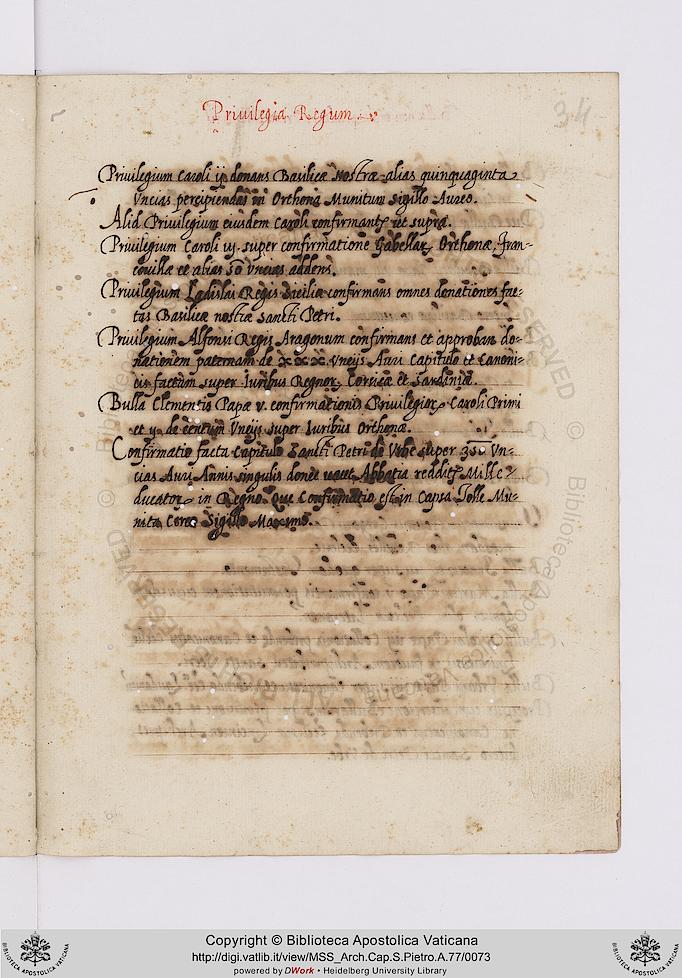 Privilegia Regum
34
Privilegium Caroli ij donans Basilicæ Nostræ alias quinquaginta
Uncias percipiendas in Orthona Munitum Sigillo Aureo.
Aliđ Privilegium eiusdem Caroli confirmant ut supra.
Privilegium Caroli iij super confirmatione Gabellar Orthonæ, Fran-
covillæ et alias 50 Uncias addens.
Privilegium Ladislai Regis Siciliæ confirmans omnes donationes fac-
tas Basilicæ nostræ Sancti Petri.
Privilegium Alfonsi Regis Aragonum confirmans et approbans do-
nationem paternam de xxxx Uncijs Auri Capitulo et Canoni-
cis factum super Iuribus Regnor Corsicæ et Sardiniæ.
Bulla Clementis Papæ v. confirmationis Privilegior Caroli Primi
et ij de centum Uncijs super Iuribus Orthonæ.
Confirmatio facta Capitulo Sancti Petri de Urbe super 350 Un-
cias Auri Annis singulis donec Abbatia reddit Mille
ducator in Regno. Que Confirmatio est in Capsa Mu-
nita Cereo Sigillo Maximo.
Copyright © Biblioteca Apostolica Vaticana
http://digi.vatlib.it/view/MSS_Arch.Cap.S.Pietro.A.77/0073
powered by DWork • Heidelberg University Library